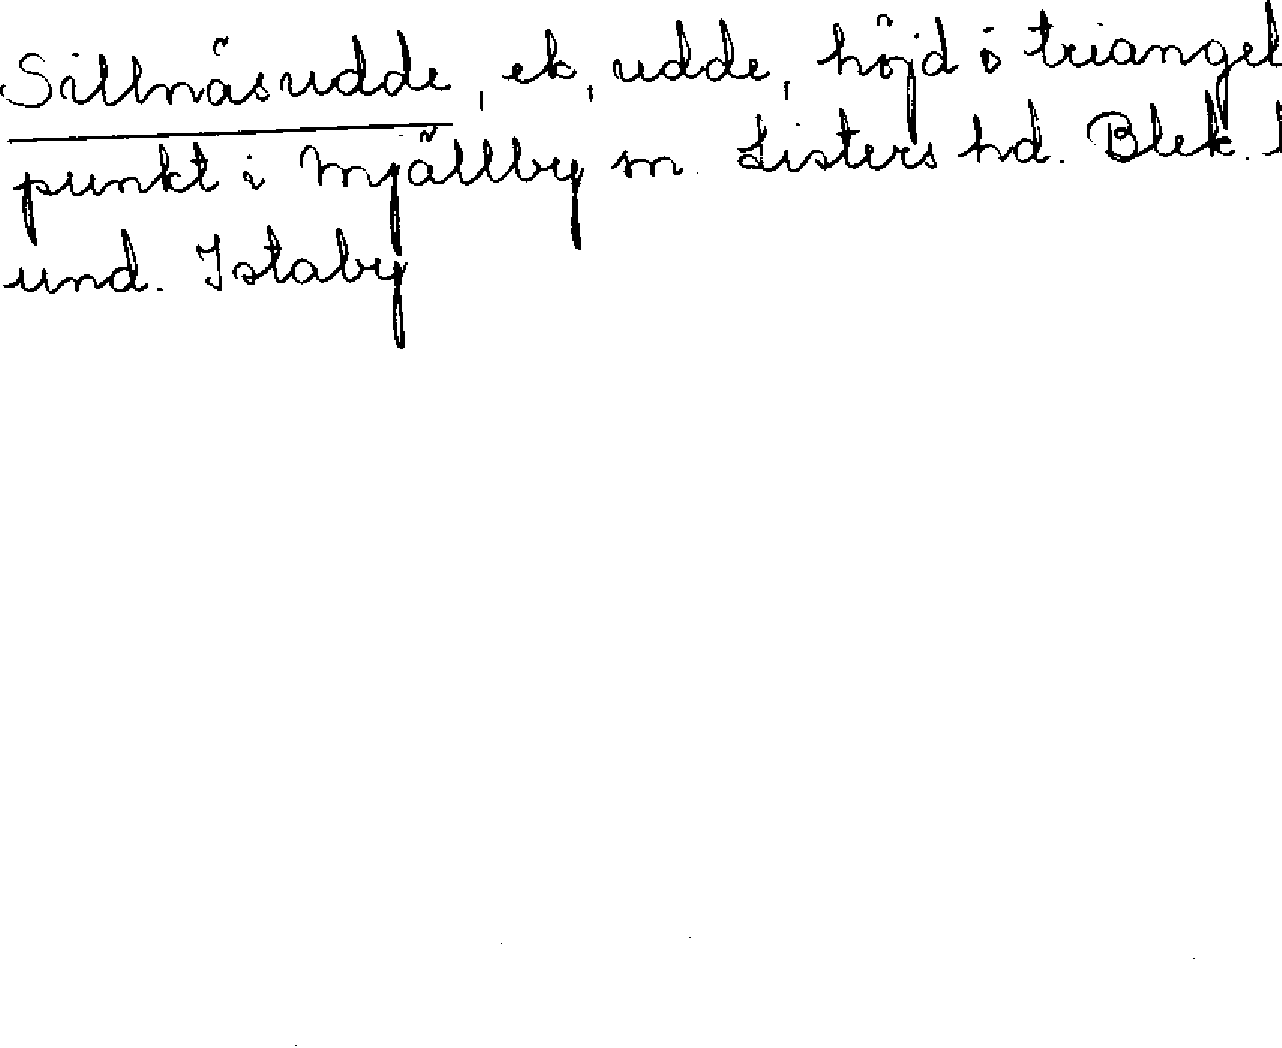 Sillnäsudde, ek, udde, höjd o triangel
punkt i Mjällby sn. Listers hd. Blek.
und. Istaby